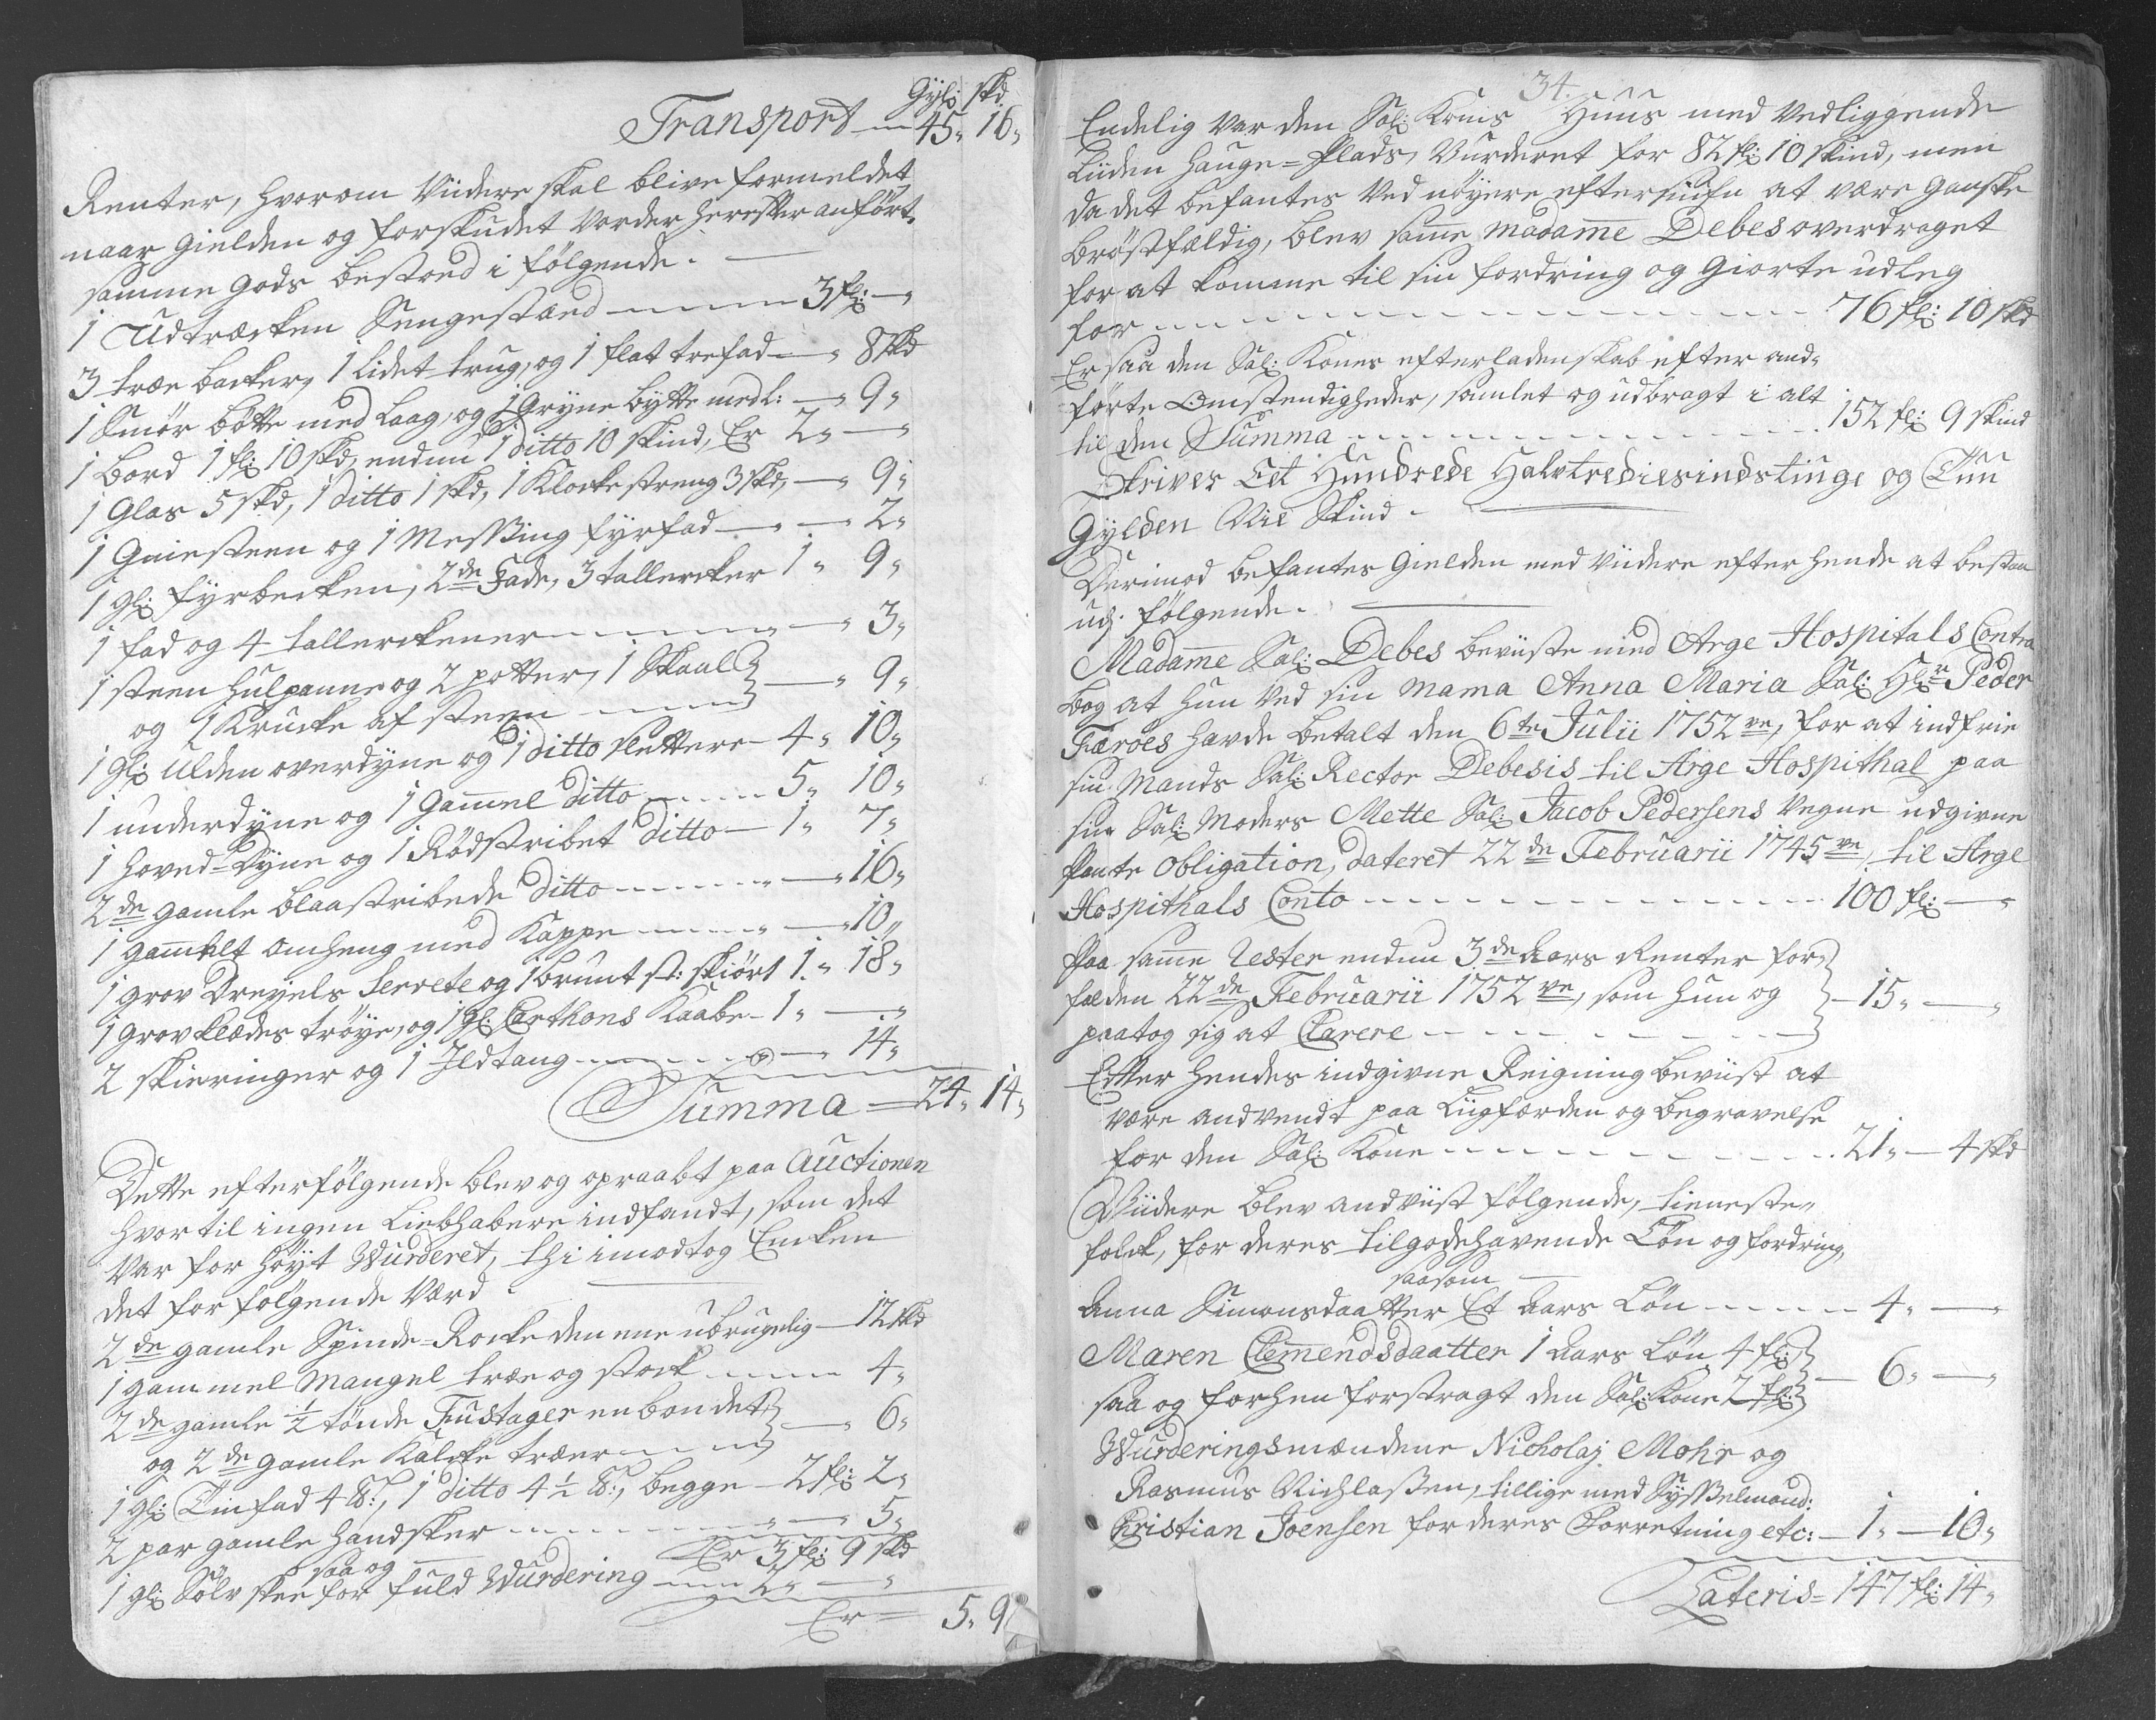 Gyl: skd
Transport — 45" 16"
Renter, hvorom Viidere skal blive formeldet
naar Gielden og forskudet vorder herefter anført.
samme Gods bestoed i følgende.
1 Udtræcken Sengestæd — 3 fl: — "
3 træe backer, 1 lidet trug, og 1 flat trefad — " 8 skd
1 Smør bøtte med Laag, og 1 Gryne bytte med l: — " 9"
1 Bord 1 fl: 10 skd, endnu 1 ditto 10 skind, Er 2" — "
1 Glas 5 skd, 1 ditto 1 skd, 1 Klocke streng 3 skd, — " 9"
1 Gniesteen og 1 Messing fyrfad — " — " 2"
1 gl: fyrbecken, 2de Fade, 3 tallercker 1" 9"
1 fad og 4 tallerckener — " 3"
1 steen hulpanne og 2 potter, 1 Skaal
og 1 Krucke af steen — " 9"
1 gl: Ulden overdyne og 1 ditto slettere — 4" 10"
1 underdyne og 1 Gammel ditto — 5" 10"
1 hoved-Dyne og 1 Rødstribet ditto — 1" 7"
2de gamle blaastribede ditto — " 16"
1 gammelt omheng med Kappe — " 10"
1 grov Dreyels Servete og 1 brunt st: skiørt 1" 18"
1 grov klædes trøye, og 1 gl: Carthons Kaabe — 1" — "
2 skieringer og 1 Ildtang — " 14"
Summa — 24" 14"
Dette efterfølgende blev og opraabt paa Auctionen
hvortil ingen Liebhabere indfandt, som det
var for høyt Wurderet, thi imodtog Encken
det for følgende Værd
2de gamle Spinde-Rocke den ene ubrugelig — 12 skd
1 gammel Mangel træe og stock — 4"
2de gamle ½ tønde Fustager en bondet
og 2de gamle Kalcke træer — " 6"
1 gl: Tinfad 4 ℔:, 1 ditto 4½ ℔:, begge — 2 fl: 2"
2 par gamle handsker — " 5"
Er 3 fl: 9 skd
saa og
1 gl: Sølv skee for fuld Wurdering — 2" — "
Er = 5" 9
34.
Endelig var den Sal: Kones Huus med Vedliggende
Liiden Hauge-Plads, Vurderet for 82 fl: 10 skind, men
da det befantes ved nøyere eftersiufn at være ganske
brøstfældig, blev samme Madame Debes overdraget
for at komme til sin fordring og Giorte udleg
for — 76 fl: 10 skd
Er saa den Sal: Kones efterladenskab efter and-
førte Omstendigheder, samlet og udbragt i alt
til den Summa — 152 fl: 9 skind
Skriver Et Hundrede Halvtrediesindstiuge og Tuu
Gylden Nie Skind.
Derimod befantes Gielden med Viidere efter hende at bestaa
udj følgende.
Madame Sal: Debes beviiste med Arge Hospitals Contra
bog at hun ved sin Mama Anna Maria Sal: Hr: Peder
Færoes havde betalt den 6te Julii 1752ve, for at indfrie
sin Mands Sal: Rector Debesis til Arge Hospithal paa
sin Sal: Moders Mette Sal: Jacob Pedersens Vegne udgivne
Pante Obligation, dateret 22de Februarii 1745ve, til Arge
Hospithals Conto — 100 fl: — "
Paa samme Rester endnu 3de Aars Renter for-
falden 22de Februarii 1752ve, som hun og
paatog sig at Clarere — 15" — "
Efter hendes indgivne Reigning beviist at
være andvendt paa Liigfærden og begravelse
for den Sal: Kone — 21" — 4 skd
Viidere blev andviist følgende, tieneste-
folck, for deres tilgodehavende Løn og fordring,
saasom
Anna Simonsdaatter Et Aars Løn — 4" — "
Maren Clemendsdaatter 1 Aars Løn 4 fl:
saa og forhen forstragt den Sal: Kone 2 fl: — 6" — "
Wurderingsmændene Nicholaj Mohr og
Rasmus Nichlaßen, tillige med Sysselmand:
Christian Joensen for deres Forretning etc: — 1" — 10"
Lateris = 147 fl: 14"